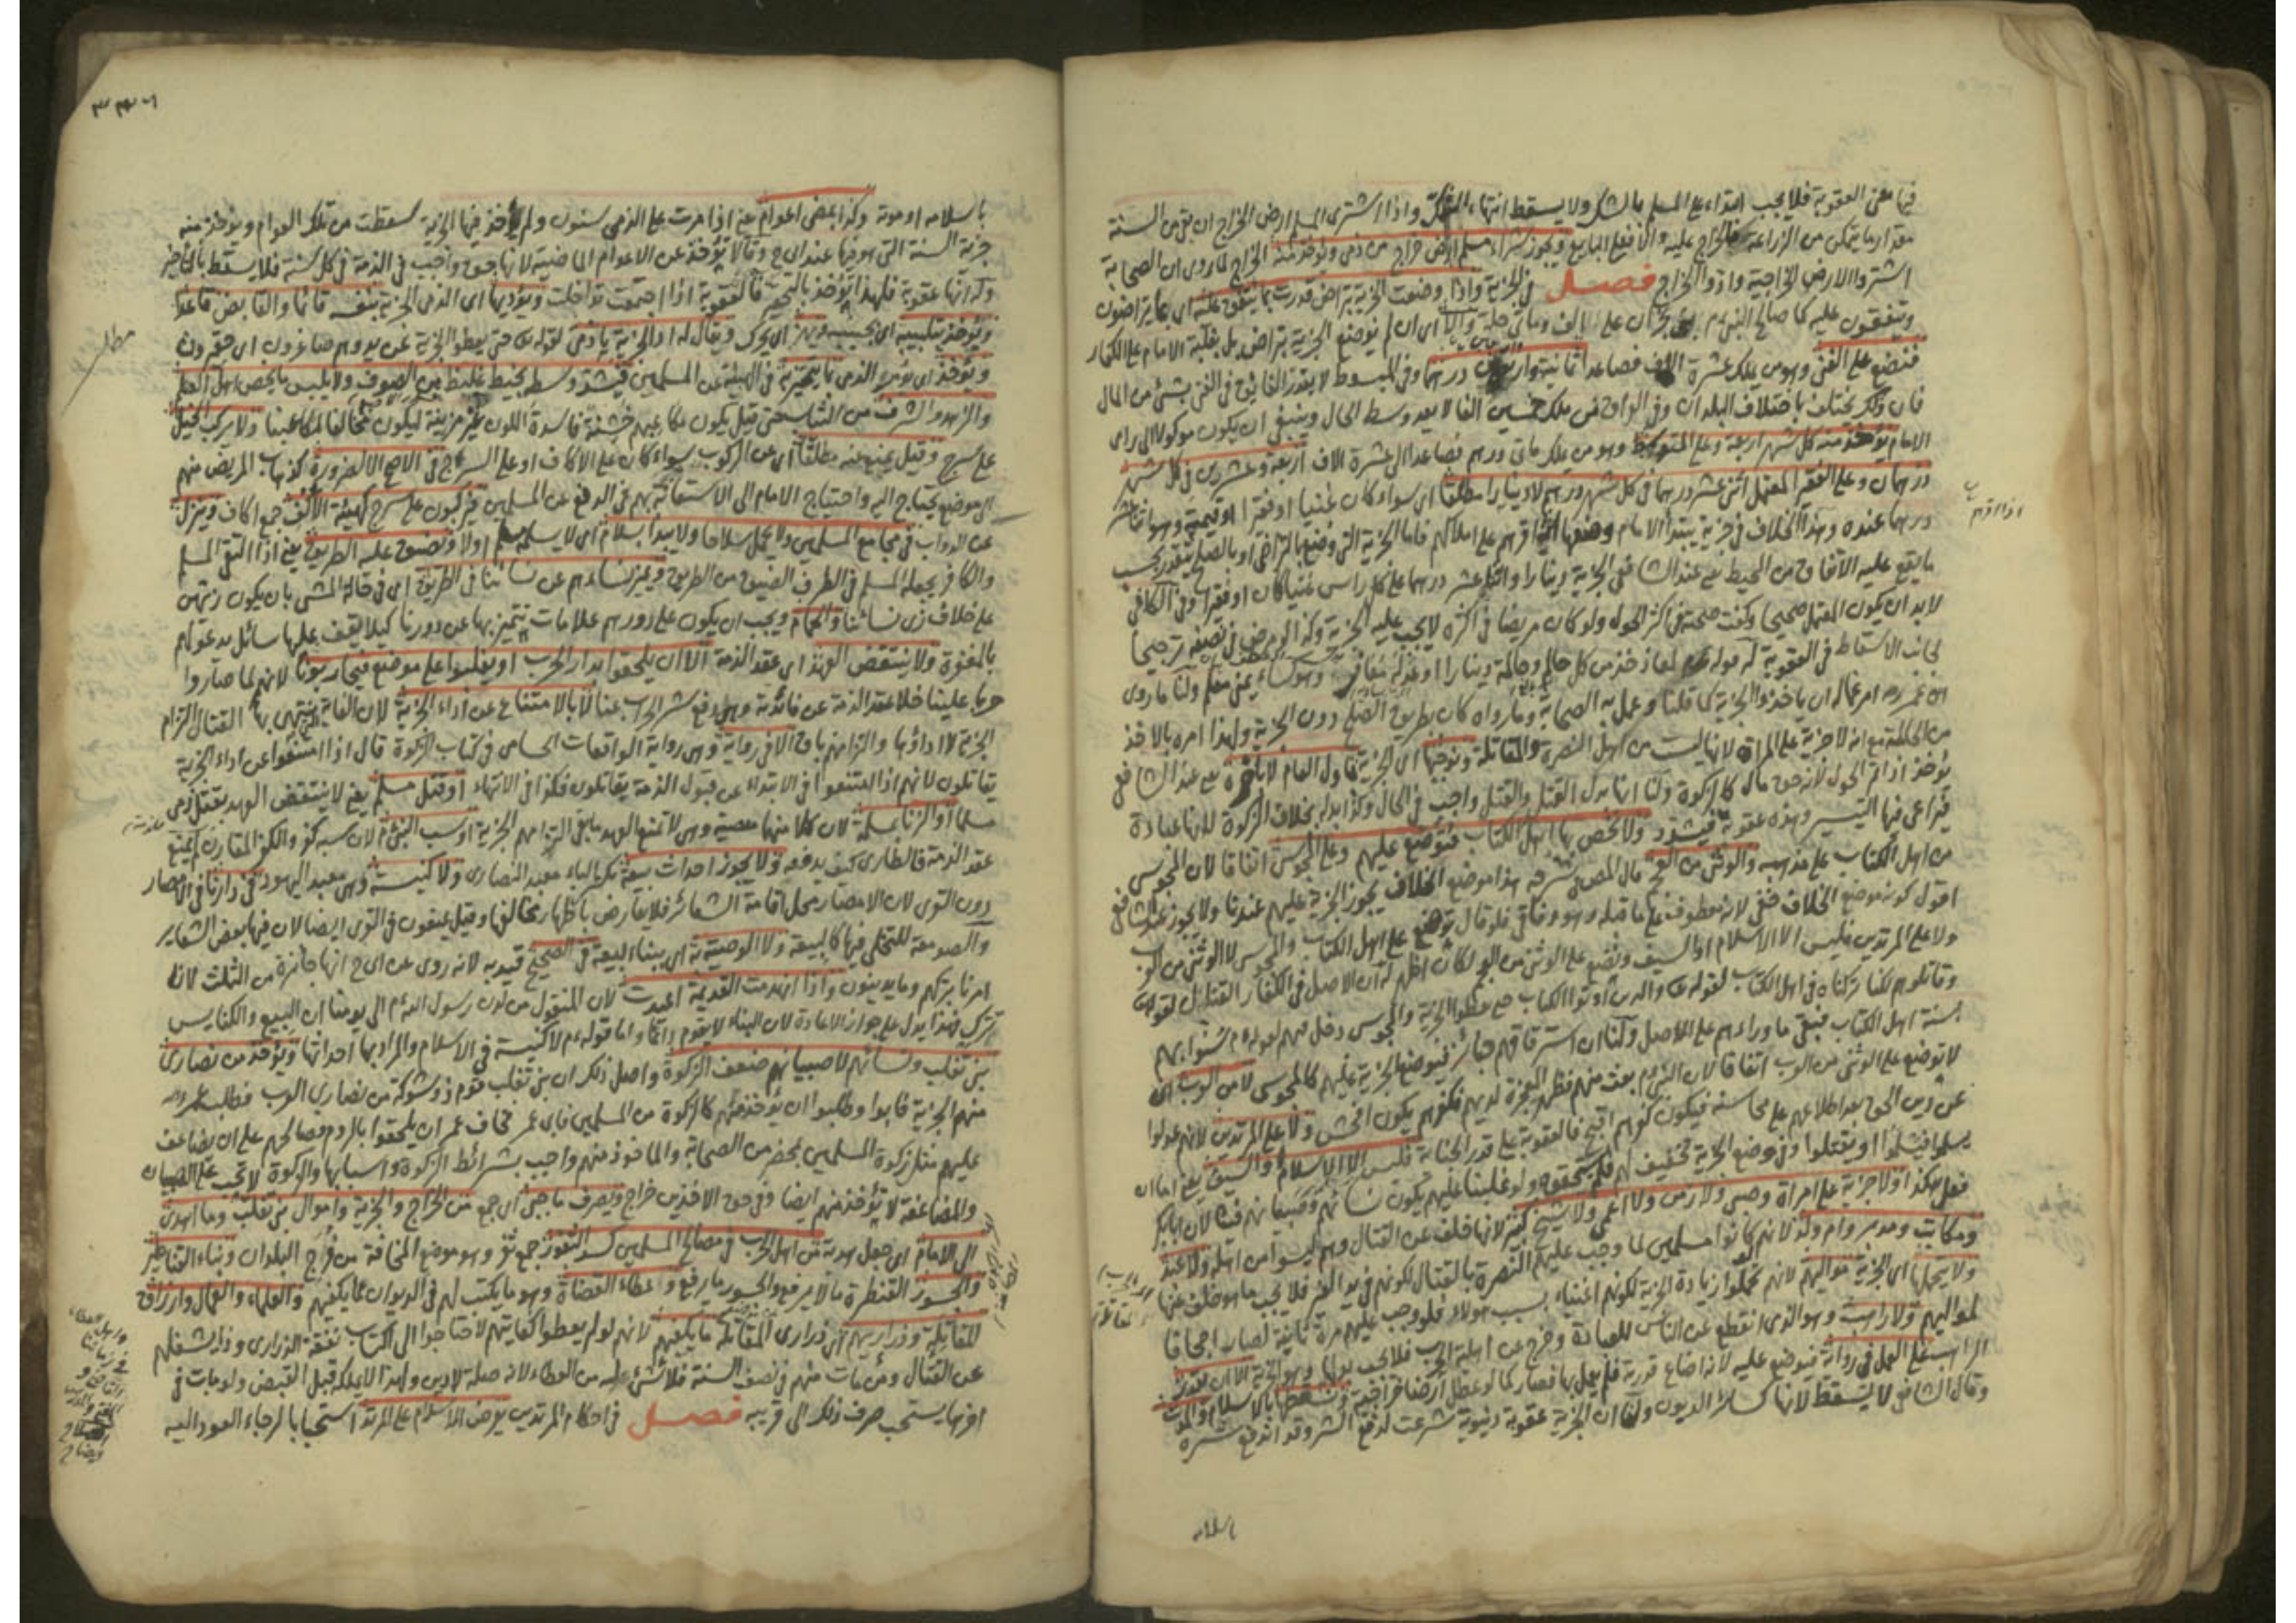 فيها معنى العقوبة فلا يجب ابتداء على المسلم بالشك ولا يسقط انتهاء بالشك واذا اشترى المسلم ارض الخراج ان بقى من السنة
مقدار ما يتمكن من الزراعة فالخراج عليه والا فعلى البايع ويجوز شراء مسلم ارض خراج من ذمى ويؤخذ منه الخراج لما روى ان الصحابة
اشتروا الارض الخراجية وادوا الخراج فصل فى الجزية واذا وضعت الجزية بتراض قدرت بما يتفق عليه اى بما يتراضون
ويتفقون عليه كما صالح النبى عم بنى نجران على الف ومأتى حلة والا اى ان لم توضع الجزية بتراض بل بغلبة الامام على الكفار
فتضع على الغنى وهو من يملك عشرة الاف فصاعدا ثمانية واربعين درهما وفى المبسوط لا يقدر الغنى بشئ من المال
فان ذلك يختلف باختلاف البلدان وفى من ملك خمسين الفا لا يعد وسط الحال وينبغى ان يكون موكولا الى راى
الامام يؤخذ منه كل شهر اربعة وعلى المتوسط وهو من يملك مأتى درهم فصاعدا الى عشرة الاف اربعة وعشرين فى كل شهر
درهمان وعلى الفقير المعتمل اثنى عشر درهما فى كل شهر درهم لا دينارا مطلقا اى سواء كان غنيا او فقيرا او قيمته وهو اثنا عشر
درهما عنده وهذا الخلاف فى جزية يبتدأ الامام وضعها اذا اقرهم على املاكهم فاما الجزية التى وضع بالتراضى او بالصلح يتقدر بحسب
ما يقع عليه الاتفاق من المحيط يعنى عند الشافعى الجزية دينارا واثنا عشر درهما على كل راس غنيا كان او فقيرا وفى الكافى
لا بد ان يكون المعتمل صحيحا وكفت صحته فى اكثر الحول ولو كان مريضا فى اكثره لا يجب عليه الجزية وكذا لو مرض فى نصفه ترجيحا
لجانب الاسقاط فى العقوبة له قوله عم لمعاذ خذ من كل حالم وحالمة دينارا او عدله معافر وهو كساء يمنى معلم ولنا ما روى
ان عمر رضه امر عماله ان ياخذوا الجزية كما قلنا وعمل به الصحابة وما رواه كان بطريق الصلح دون الجزية ولهذا امره بالاخذ
من الحالمة مع انه لا جزية على المراة لانها ليست من اهل النصرة والمقاتلة ونوجبها اى الجزية باول العام لا باخره يعنى عند الشافعى
يؤخذ اذا تم الحول لانه حق مال كالزكوة ولنا انها بدل القتل والقتل واجب فى الحال وكذا بدله بخلاف الزكوة لانها عبادة
فيراعى فيها التيسير وهذه عقوبة فيشدد ولا نخص بها اهل الكتاب فتوضع عليهم وعلى المجوس اتفاقا لان المجوس
من اهل الكتاب على مذهبه والوثنى من العجم قال المصنف فى شرحه هذا موضع الخلاف يجوز الجزية عليهم عندنا ولا يجوز عند الشافعى
اقول كونه موضع الخلاف خفى لانه معطوف على ما قبله وهو وفاقى فلو قال توضع على اهل الكتاب والمجوس لا الوثنى من العرب
ولا على المرتدين فليس الا الاسلام او السيف ونضع على الوثنى من العجم لكان اظهر له ان الاصل فى الكفار القتل لقوله تع
وقاتلوهم لكنا تركناه فى اهل الكتاب لقوله تع والذين اوتوا الكتاب حتى يعطوا الجزية والمجوس دخل فيهم لقوله عم سنوا بهم
سنة اهل الكتاب فبقى ما وراءهم على الاصل ولنا ان استرقاقهم جائز فيوضع الجزية عليهم كالمجوسى لا من العرب اى
لا توضع على الوثنى من العرب اتفاقا لان النبى عم بعث منهم فظهر المعجزة لديهم فكفرهم يكون افحش ولا على المرتدين لانهم عدلوا
عن دين الحق بعد اطلاعهم على محاسنه فيكون كفرهم اقبح فالعقوبة على قدر الجناية فليس الا الاسلام او السيف يعنى اما ان
يسلموا فيتركوا او يقتلوا وفى وضع الجزية تخفيف لهم فلم يستحقوه ولو غلبنا عليهم يكون نساءهم وصبيانهم فيئا لان ابا بكر
فعل هكذا ولا جزية على امراة وصبى ولا زمن ولا اعمى ولا شيخ كبير لانها خلف عن القتال وهم ليسوا من اهله ولا عبد
ومكاتب ومدبر وام ولد لانهم لو كانوا مسلمين لما وجب عليهم النصرة بالقتال لكونهم فى يد الغير فلا يجب ما هو خلف عنها
ولا يتحملها اى الجزية مواليهم لانهم تحملوا زيادة الجزية لكونهم اغنياء بسبب هولاء فلو وجب عليهم مرة ثانية لصار اجحافا
لمواليهم ولا راهب وهو الذى انقطع عن الناس للعبادة وخرج عن اهلية الحرب فلا يجب بدلها وهو الجزية الا ان يقدر
الراهب على العمل فى رواية فيوضع عليه لانه اضاع قدرته فلم يعمل بها فصار كما لو عطل ارضا خراجية ونسقطها بالاسلام والموت
وقال الشافعى لا يسقط لانها كسائر الديون ولنا ان الجزية عقوبة دنيوية شرعت لدفع الشر وقد اندفع شره
باسلامه
باسلامه او موته وكذا بمضى اعوام يعنى اذا مرت على الذمى سنون ولم يؤخذ فيها الجزية سقطت من تلك الاعوام ويؤخذ منه
جزية السنة التى هو فيها عند ابى ح وقالا تؤخذ عن الاعوام الماضية لانها حق واجب فى الذمة فى كل سنة فلا يسقط بالتاخير
وله انها عقوبة فلهذا تؤخذ بالتحقير فالعقوبة اذا اجتمعت تداخلت ويؤديها اى الذمى الجزية بنفسه قائما والقابض قاعدا
ويؤخذ بتلبيبه اى بجيبه ويهز اى يحرك ويقال له اد الجزية يا ذمى لقوله تع حتى يعطوا الجزية عن يد وهم صاغرون اى حقيرون
ويؤخذ اى يؤمر الذمى بما يميزه فى الهيئة عن المسلمين فيشد وسطه بخيط غليظ من الصوف ولا يلبس ما يخص اهل العلم
والزهد والشرف من الثياب حتى قيل يكون مكاعبهم خشنة فاسدة اللون غير مزينة ليكون مخالفا لمكاعبنا ولا يركب الخيل
على سرج وقيل يمنع عنه مطلقا اى عن الركوب سواء كان على الاكاف او على السرج فى الاصح الا لضرورة كذهاب المريض منهم
الى موضع يحتاج اليه واحتياج الامام الى الاستعانة بهم فى الدفع عن المسلمين فيركبون على سرج كهيئة الاكف جمع اكاف وينزل
عن الدواب فى مجامع المسلمين ولا يحمل سلاحا ولا يبدأ بسلام اى لا يسلم مسلم اولا ونضيق عليه الطريق يعنى اذا التقى المسلم
والكافر يجعله المسلم فى الطرف الضيق من الطريق ويميز نساءهم عن نسائنا فى الطريق اى فى حالة المشى بان يكون زيهن
على خلاف زى نسائنا والحمام ويجب ان يكون على دورهم علامات يتميز بها عن دورنا كيلا يقف عليها سائل يدعو لهم
بالمغفرة ولا ينتقض العهد اى عقد الذمة الا ان يلحقوا بدار الحرب او يغلبوا على موضع فيحاربوننا لانهم لما صاروا
حربا علينا خلا عقد الذمة عن فائدته وهى دفع شر الحراب عنا لا بالامتناع عن اداء الجزية لان الغاية التى ينتهى بها القتال التزام
الجزية لا اداؤها والتزامهم باق الا فى رواية وهى رواية الواقعات الحسامى فى كتاب الزكوة قال اذا امتنعوا عن اداء الجزية
يقاتلون لانهم اذا امتنعوا فى الابتداء عن قبول الذمة يقاتلون فكذا فى الانتهاء او قتل مسلم يعنى لا ينتقض العهد بقتل ذمى
مسلما او الزنا بمسلمة لان كلا منهما معصية وهى لا تمنع العهد ما بقى التزامهم الجزية او سب النبى عم لان سبه كفر والكفر المقارن لم يمنع
عقد الذمة فالطارى كيف يدفعه ولا يجوز احداث بيعة بكسر الباء معبد النصارى ولا كنيسة وهى معبد اليهود فى دارنا فى الامصار
دون القرى لان الامصار محل اقامة الشعائر فلا يعارض باظهار مخالفها وقيل يمنعون فى القرى ايضا لان فيها بعض الشعاير
والصومعة للتخلى فيها كالبيعة ولا الوصية به اى ببناء البيعة فى الصحيح قيد به لانه روى عن ابى ح انها جائزة من الثلث لانا
امرنا بتركهم وما يدينون واذا انهدمت القديمة اعيدت لان المنقول من لدن رسول الله عم الى يومنا ان البيع والكنايس
تترك فهذا يدل على جواز الاعادة لان البناء لا يقوم دائما واما قوله عم لا كنيسة فى الاسلام والمراد بها احداثها ويؤخذ من نصارى
بنى تغلب ونسائهم لا صبيانهم ضعف الزكوة واصل ذلك ان بنى تغلب قوم ذو شوكة من نصارى العرب فطلب عمر رضه
منهم الجزية فابوا وطلبوا ان تؤخذ منهم كالزكوة من المسلمين فابى عمر فخاف عمر ان يلحقوا بالروم وصالحهم على ان يضاعف
عليهم مثل زكوة المسلمين بمحضر من الصحابة والماخوذ منهم واجب بشرائط الزكوة واسبابها والزكوة لا تجب على الصبيان
والمضاعفة لا تؤخذ منهم ايضا وفى حق الاخذين خراج ويصرف ما جبى اى جمع من الخراج والجزية واموال بنى تغلب وما اهدى
الى الامام اى جعل هدية من اهل الحرب فى مصالح المسلمين كسد الثغور جمع ثغر وهو موضع المخافة من فرج البلدان وبناء القناطير
والجسور القنطرة ما لا يرفع والجسور ما يرفع واعطاء القضاة وهو ما يكتب لهم فى الديوان بما يكفيهم والعلماء والعمال وارزاق
المقاتلة وذراريهم اى ذرارى المقاتلة ما يكفيهم لانهم لو لم يعطوا كفايتهم لاحتاجوا الى اكتساب نفقة الذرارى وذا يشغلهم
عن القتال ومن مات منهم فى نصف السنة فلا شئ عليه من العطاء لانه صلة لا دين ولهذا لا يملكه قبل القبض ولو مات فى
اخرها يستحب صرف ذلك الى قريبه فصل فى احكام المرتدين يعرض الاسلام على المرتد استحبابا لرجاء العود اليه
مطلب